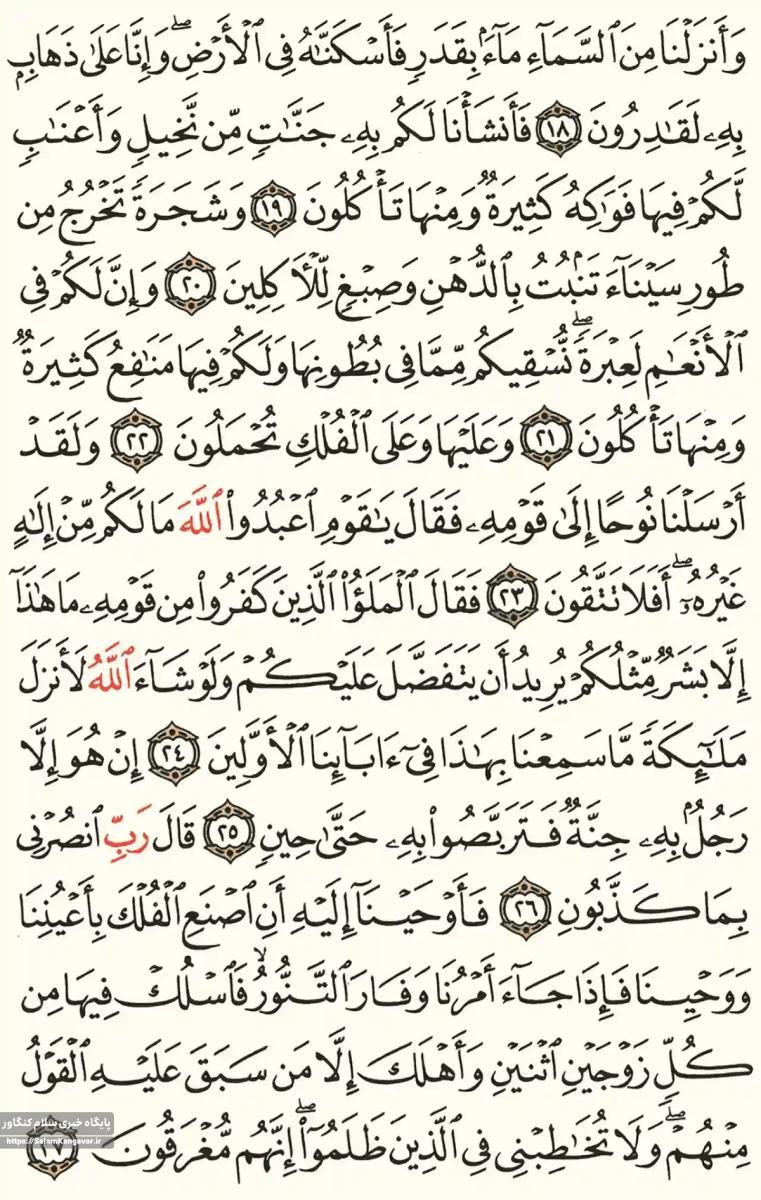 وَأَنزَلْنَا مِنَ ٱلسَّمَآءِ مَآءًۢ بِقَدَرٍ فَأَسْكَنَّٰهُ فِى ٱلْأَرْضِۖ وَإِنَّا عَلَىٰ ذَهَابٍۭ
بِهِۦ لَقَٰدِرُونَ ١٨ فَأَنشَأْنَا لَكُم بِهِۦ جَنَّٰتٍ مِّن نَّخِيلٍ وَأَعْنَٰبٍ
لَّكُمْ فِيهَا فَوَٰكِهُ كَثِيرَةٌ وَمِنْهَا تَأْكُلُونَ ١٩ وَشَجَرَةً تَخْرُجُ مِن
طُورِ سَيْنَآءَ تَنۢبُتُ بِٱلدُّهْنِ وَصِبْغٍ لِّلْـَٔاكِلِينَ ٢٠ وَإِنَّ لَكُمْ فِى
ٱلْأَنْعَٰمِ لَعِبْرَةًۖ نُّسْقِيكُم مِّمَّا فِى بُطُونِهَا وَلَكُمْ فِيهَا مَنَٰفِعُ كَثِيرَةٌ
وَمِنْهَا تَأْكُلُونَ ٢١ وَعَلَيْهَا وَعَلَى ٱلْفُلْكِ تُحْمَلُونَ ٢٢ وَلَقَدْ
أَرْسَلْنَا نُوحًا إِلَىٰ قَوْمِهِۦ فَقَالَ يَٰقَوْمِ ٱعْبُدُوا۟ ٱللَّهَ مَا لَكُم مِّنْ إِلَٰهٍ
غَيْرُهُۥٓۖ أَفَلَا تَتَّقُونَ ٢٣ فَقَالَ ٱلْمَلَؤُا۟ ٱلَّذِينَ كَفَرُوا۟ مِن قَوْمِهِۦ مَا هَٰذَآ
إِلَّا بَشَرٌ مِّثْلُكُمْ يُرِيدُ أَن يَتَفَضَّلَ عَلَيْكُمْ وَلَوْ شَآءَ ٱللَّهُ لَأَنزَلَ
مَلَٰٓئِكَةً مَّا سَمِعْنَا بِهَٰذَا فِىٓ ءَابَآئِنَا ٱلْأَوَّلِينَ ٢٤ إِنْ هُوَ إِلَّا
رَجُلٌۢ بِهِۦ جِنَّةٌ فَتَرَبَّصُوا۟ بِهِۦ حَتَّىٰ حِينٍ ٢٥ قَالَ رَبِّ ٱنصُرْنِى
بِمَا كَذَّبُونِ ٢٦ فَأَوْحَيْنَآ إِلَيْهِ أَنِ ٱصْنَعِ ٱلْفُلْكَ بِأَعْيُنِنَا
وَوَحْيِنَا فَإِذَا جَآءَ أَمْرُنَا وَفَارَ ٱلتَّنُّورُۙ فَٱسْلُكْ فِيهَا مِن
كُلٍّ زَوْجَيْنِ ٱثْنَيْنِ وَأَهْلَكَ إِلَّا مَن سَبَقَ عَلَيْهِ ٱلْقَوْلُ
مِنْهُمْۖ وَلَا تُخَٰطِبْنِى فِى ٱلَّذِينَ ظَلَمُوٓا۟ۖ إِنَّهُم مُّغْرَقُونَ ٢٧
پایگاه خبری سلام کنگاور
https://SalamKangavar.ir